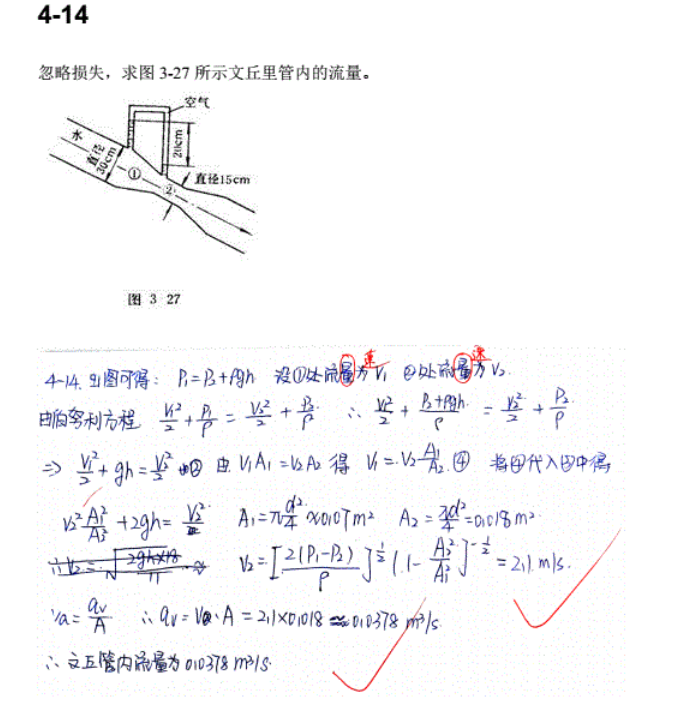 4-14
忽略损失，求图 3-27 所示文丘里管内的流量。
空气
水
直径
30cm
20cm
①
②
直径15cm
图 3 27
4-14. 由图可得： P₁=P₂+ρgh 设①处流量为V₁ ②处流量为V₂.
速 速
由伯努利方程 V₁²/2 + P₁/ρ = V₂²/2 + P₂/ρ ∴ V₁²/2 + (P₂+ρgh)/ρ = V₂²/2 + P₂/ρ
⇒ V₁²/2 + gh = V₂²/2 由 V₁A₁=V₂A₂ 得 V₁=V₂ A₁/A₂. ④ 将④代入中得
V₂² A₁²/A₂² + 2gh = V₂² A₁=π d²/4 ≈0.07m² A₂= πd²/4 =0.018m².
V₂=[2(P₁-P₂)/ρ]^½ (1- A₂²/A₁²]^-½ = 2.1 m/s.
Va= qv/A ∴ qv=Va·A = 2.1×0.018 ≈ 0.0378 m³/s.
∴ 文丘管内流量为 0.0378 m³/s.